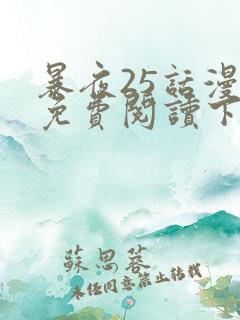 暴夜25話漫
免費閱讀下
蘇思蓉
未經同意禁止轉載